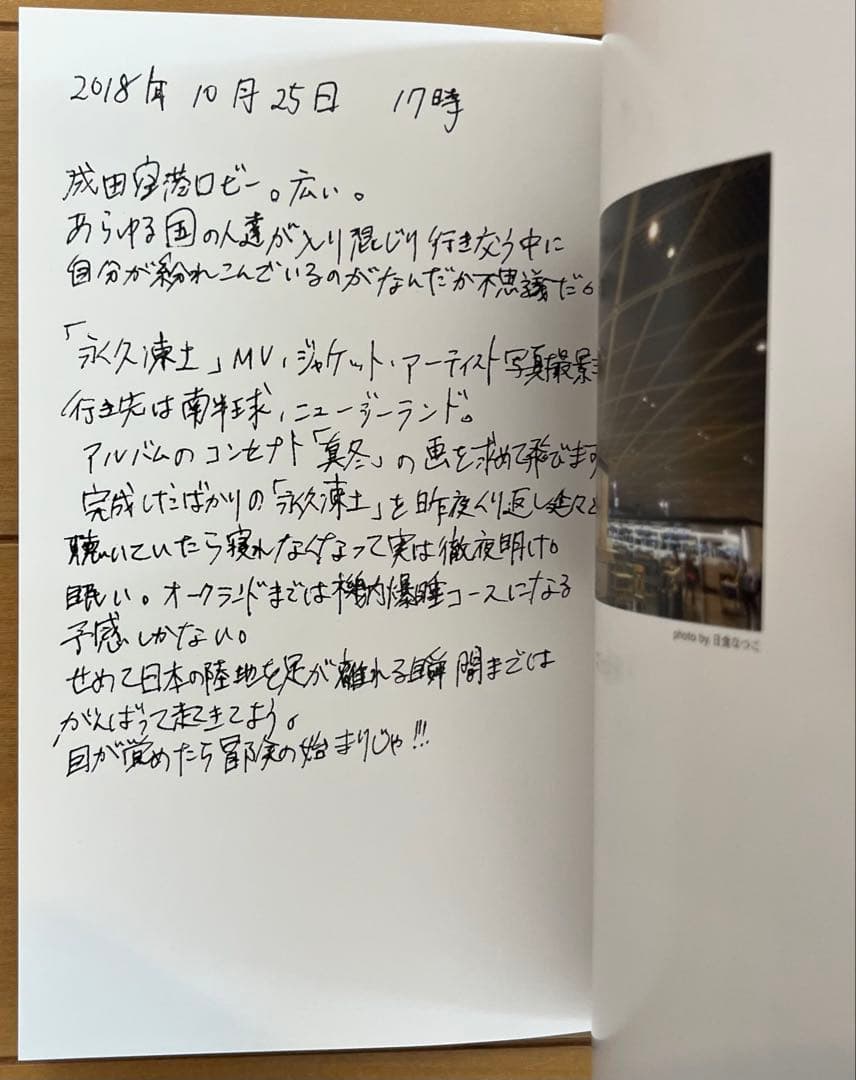 2018年 10月25日 17時
成田空港ロビー。広い。
あらゆる国の人達が入り混じり行き交う中に
自分が紛れこんでいるのがなんだか不思議だ。
「永久凍土」MV、ジャケット・アーティスト写真撮影
行き先は南半球、ニュージーランド。
アルバムのコンセプト「真冬」の画を求めて飛びます
完成したばかりの「永久凍土」を昨夜くり返し延々と
聴いていたら寝れなくなって実は徹夜明け。
眠い。オークランドまでは機内爆睡コースになる
予感しかない。
せめて日本の陸地を足が離れる瞬間までは
がんばって起きてよう。
目が覚めたら冒険の始まりじゃ!!!
photo by 日食なつこ